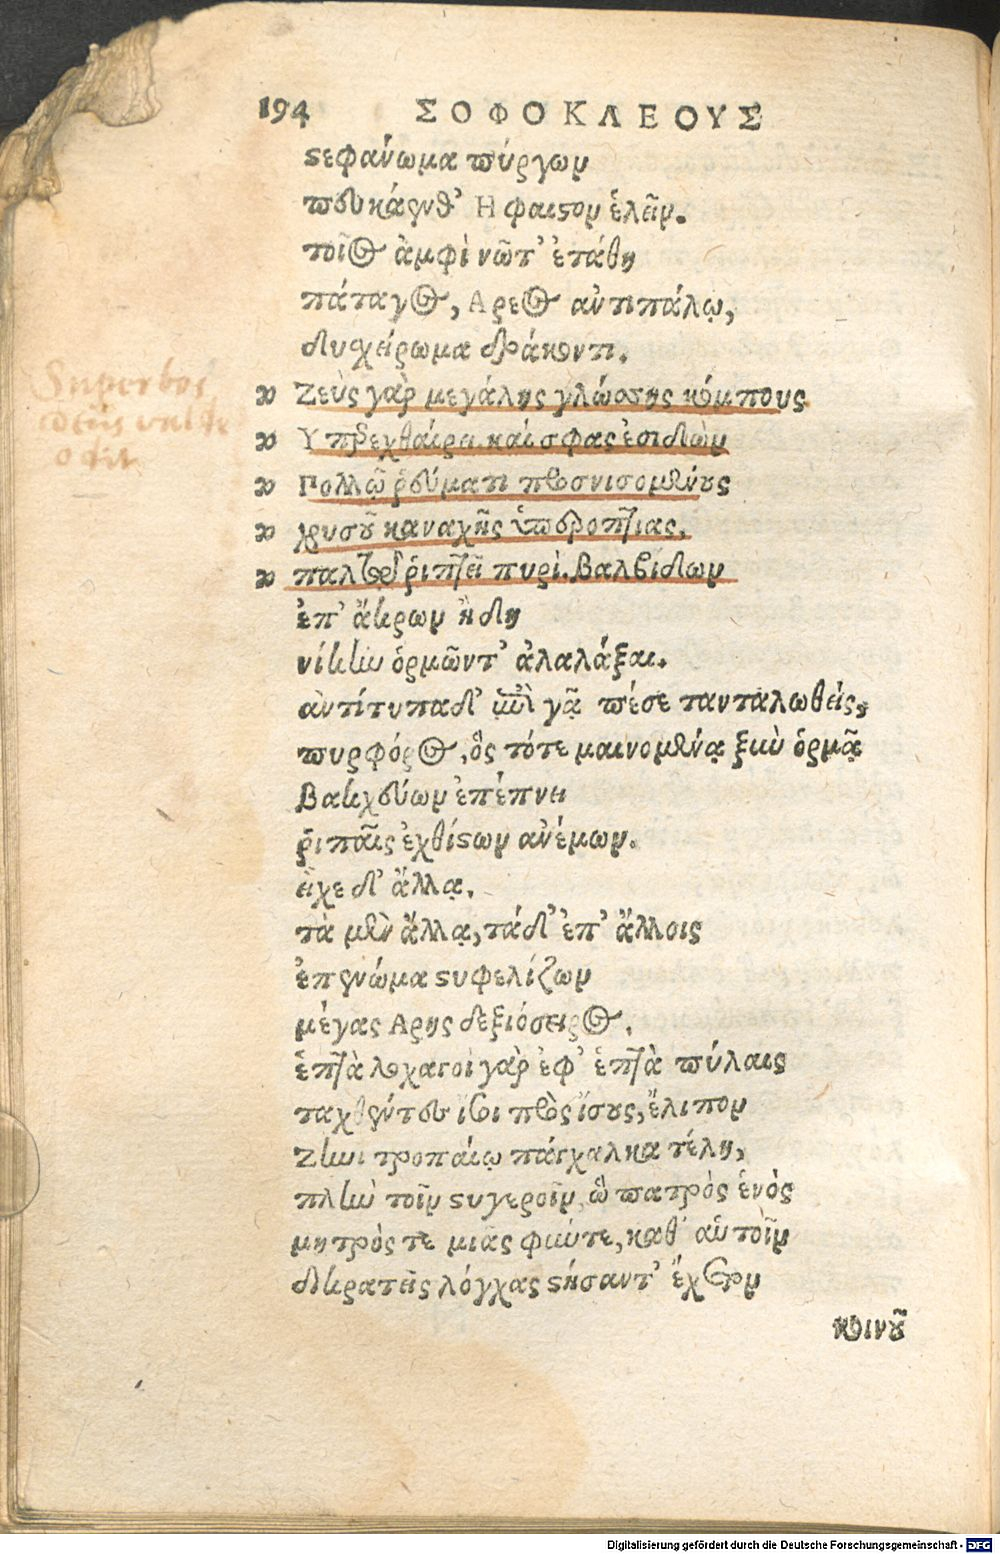 194 ΣΟΦΟΚΛΕΟΥΣ
στεφάνωμα πύργων
πευκάενθ' Ηφαιστον ἑλεῖν.
τοῖος ἀμφὶ νῶτ' ἐτάθη
πάταγος, Αρεος ἀντιπάλῳ,
δυσχείρωμα δράκοντι.
Ζεὺς γὰρ μεγάλης γλώσσης κόμπους
Υπερεχθαίρει. καί σφας ἐσιδὼν
Πολλῷ ῥεύματι προσνισομένους
χρυσοῦ καναχῆς ὑπεροπτίας,
παλτῷ ῥιπτεῖ πυρὶ. βαλβίδων
ἐπ' ἄκρων ἤδη
νίκην ὁρμῶντ' ἀλαλάξαι.
ἀντίτυπα δ' ἐπὶ γᾷ πέσε τανταλωθείς,
πυρφόρος, ὃς τότε μαινομένᾳ ξὺν ὁρμᾷ
βακχεύων ἐπέπνει
ῥιπαῖς ἐχθίστων ἀνέμων.
εἶχε δ' ἄλλᾳ.
τὰ μὲν ἄλλᾳ, τάδ' ἐπ' ἄλλοις
ἐπενώμα στυφελίζων
μέγας Αρης δεξιόσειρος.
ἑπτὰ λοχαγοὶ γὰρ ἐφ' ἑπτὰ πύλαις
ταχθέντες ἴσοι πρὸς ἴσους, ἔλιπον
Ζηνὶ τροπαίῳ πάγχαλκα τέλη,
πλὴν τοῖν στυγεροῖν, ὣ πατρὸς ἑνὸς
μητρός τε μιᾶς φύντε, καθ' αὑτοῖν
δικρατεῖς λόγχας στήσαντ' ἔχετον
κοινοῦ
Superbos
deus valde
odit
Digitalisierung gefördert durch die Deutsche Forschungsgemeinschaft - DFG